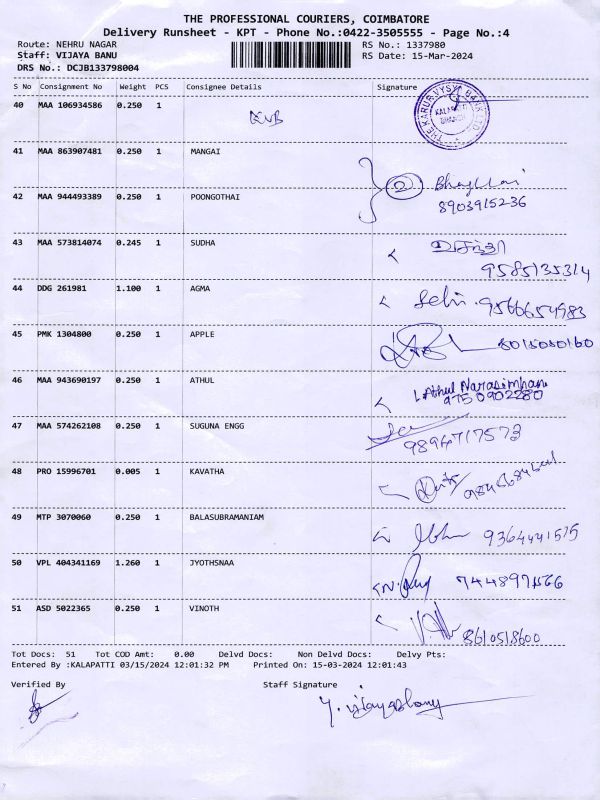 THE PROFESSIONAL COURIERS, COIMBATORE
Delivery Runsheet - KPT - Phone No.:0422-3505555 - Page No.:4
Route: NEHRU NAGAR
Staff: VIJAYA BANU
DRS No.: DCJB133798004
RS No.: 1337980
RS Date: 15-Mar-2024
S No Consignment No Weight PCS Consignee Details Signature
40 MAA 106934586 0.250 1 KVB
THE KARUR VYSYA BANK LTD. KALAPATTI BRANCH
41 MAA 863907481 0.250 1 MANGAI
42 MAA 944493389 0.250 1 POONGOTHAI
2
8903915236
43 MAA 573814074 0.245 1 SUDHA
9585135314
44 DDG 261981 1.100 1 AGMA
Selvi 9566654983
45 PMK 1304800 0.250 1 APPLE
8015050160
46 MAA 943690197 0.250 1 ATHUL
L. Athul Narasimhan
9750902280
47 MAA 574262108 0.250 1 SUGUNA ENGG
9894717573
48 PRO 15996701 0.005 1 KAVATHA
49 MTP 3070060 0.250 1 BALASUBRAMANIAM
50 VPL 404341169 1.260 1 JYOTHSNAA
51 ASD 5022365 0.250 1 VINOTH
8610518600
Tot Docs: 51 Tot COD Amt: 0.00 Delvd Docs: Non Delvd Docs: Delvy Pts:
Entered By :KALAPATTI 03/15/2024 12:01:32 PM Printed On: 15-03-2024 12:01:43
Verified By Staff Signature